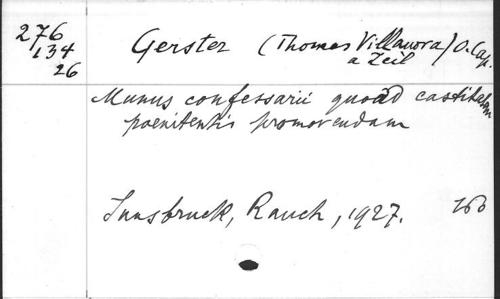 276
134
26
Gerster (Thomas Villanova) O. Cap.
a Zeil
Munus confessarii quoad castitatem
poenitentis promovendam
Innsbruck, Rauch, 1927.